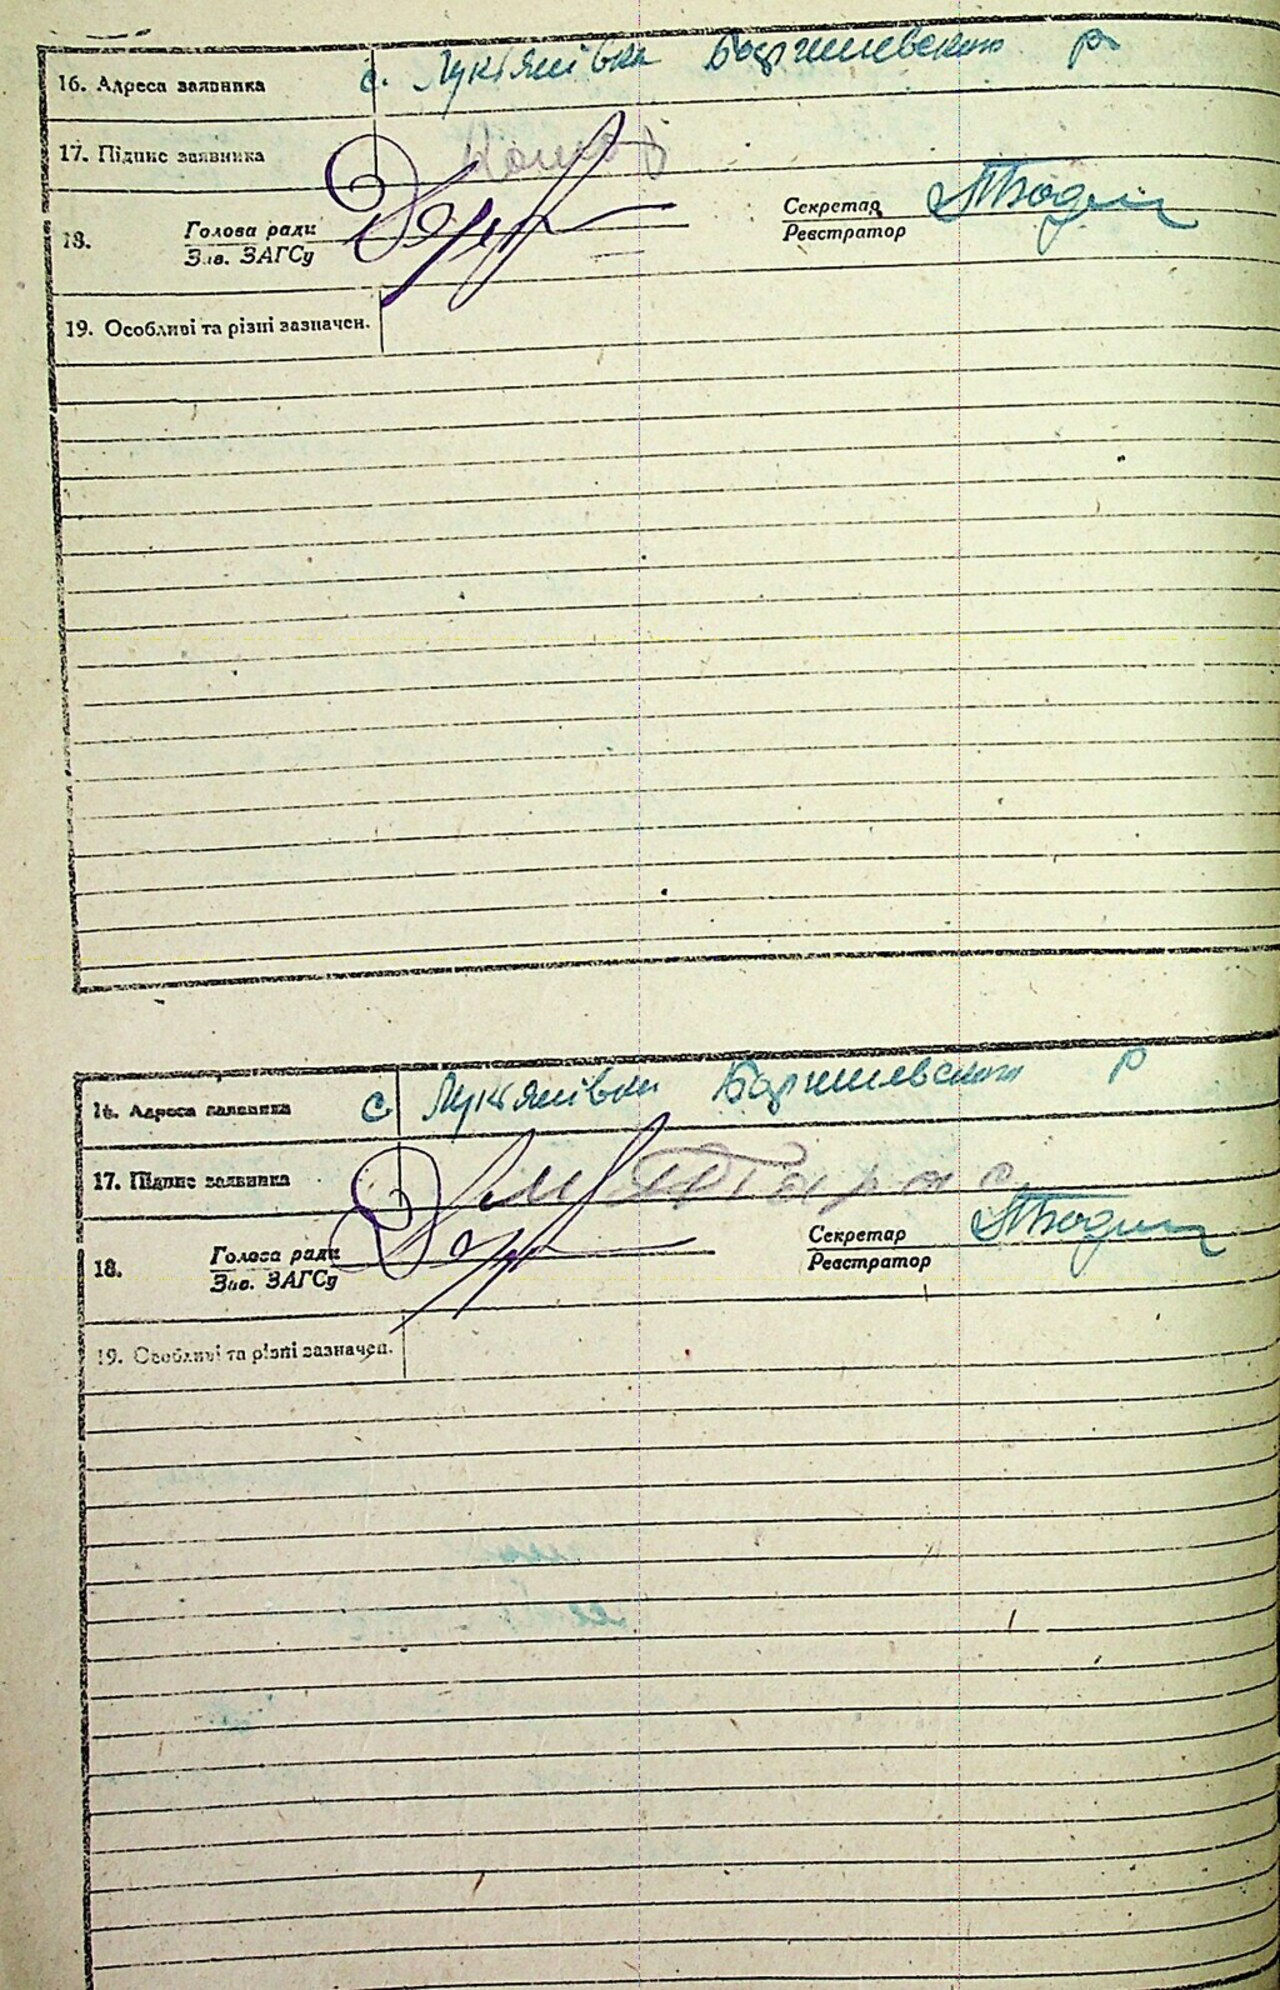 16. Адреса заявника с. Лукʼянівка Баришевского р
17. Підпис заявника
18. Голова ради Секретар
Зав. ЗАГСу Реєстратор
19. Особливі та різні зазначен.
16. Адреса заявника с Лукʼянівка Баришевского р
17. Підпис заявника
18. Голова ради Секретар
Зав. ЗАГСу Реєстратор
19. Особливі та різні зазначен.